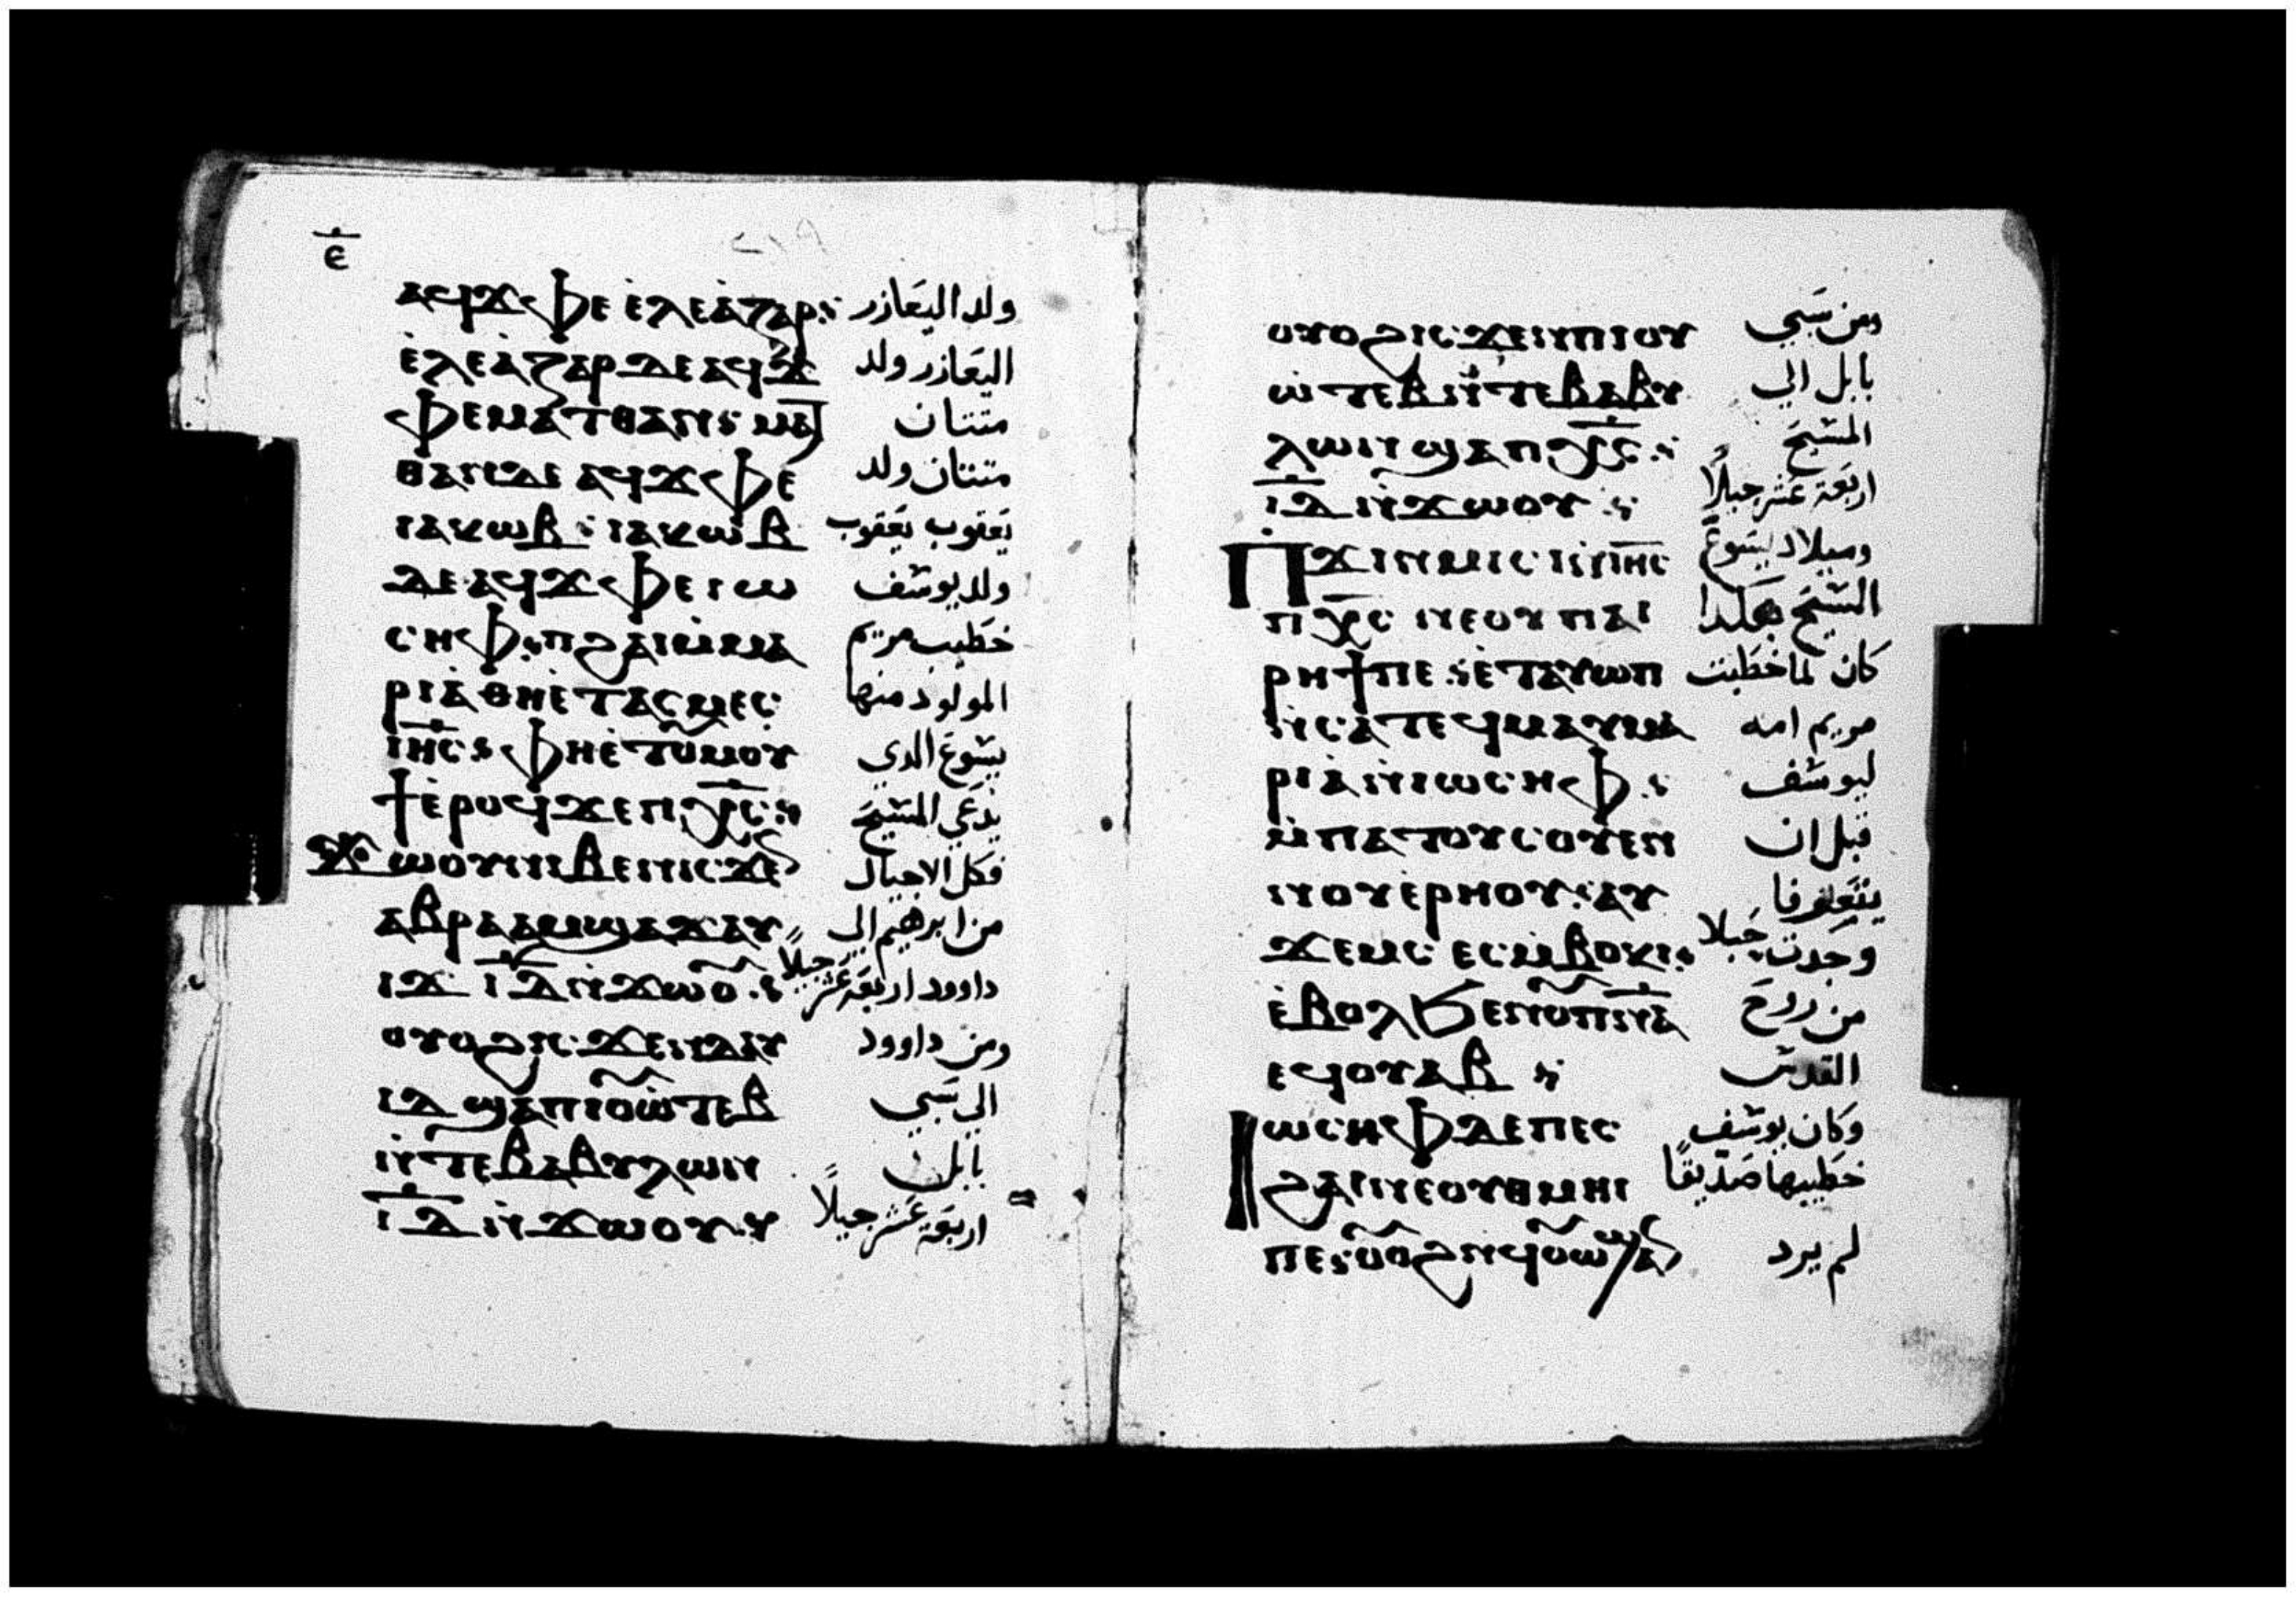 ⲉ̅
ⲁϥϫⲫⲉ ⲉ̇ⲗⲉⲁ̇ⲍⲁⲣ: ولد اليعازر
ⲉ̇ⲗⲉⲁ̇ⲍⲁⲣ ⲇⲉ ⲁϥϫ اليعازر ولد
ⲫⲉ ⲙⲁⲧⲑⲁⲛ: ⲙⲁⲧ متتان
ⲑⲁⲛ ⲇⲉ ⲁϥϫⲫⲉ متتان ولد
ⲓⲁⲕⲱⲃ: ⲓⲁⲕⲱⲃ يعقوب يعقوب
ⲇⲉ ⲁϥϫⲫⲉ ⲓⲱ ولد يوسف
ⲥⲏⲫ: ⲡϩⲁⲓ ⲙ̇ⲙⲁ خطيب مريم
ⲣⲓⲁ̇ ⲑⲏ ⲉ̇ⲧⲁⲥⲙⲉⲥ المولود منها
ⲓⲏ̅ⲥ: ⲫⲏ ⲉ̇ⲧⲟⲩⲙⲟⲩ يسوع الدي
ϯ ⲉ̇ⲣⲟϥ ϫⲉ ⲡⲭ̅ⲣ̅ⲥ: يدعي المسيح
ϫⲱⲟⲩ ⲛⲓⲃⲉⲛ ⲓⲥϫⲉ فكل الاجيال
ⲁⲃⲣⲁⲁⲙ ϣⲁ ⲇⲁⲩ من ابرهيم الى
ⲓⲇ ⲓ̅ⲇ̅ ⲛ̇ϫⲱⲟ: داوود اربعة عشر جيلاً
ⲟⲩⲟϩ ⲓⲥϫⲉⲛ ⲇⲁⲩ ومن داوود
ⲓⲇ ϣⲁ ⲡⲓⲟⲩⲱ̇ⲧⲉⲃ الى سبي
ⲛ̇ⲧⲉ ⲃⲁⲃⲩⲗⲱⲛ بابل
ⲓ̅ⲇ̅ ⲛ̇ϫⲱⲟⲩ: اربعة عشر جيلاً
ⲟⲩⲟϩ ⲓⲥϫⲉⲛ ⲡⲓⲟⲩ ومن سبي
ⲱ̇ⲧⲉⲃ ⲛ̇ⲧⲉ ⲃⲁⲃⲩ بابل الي
ⲗⲱⲛ ϣⲁ ⲡⲭ̅ⲣ̅ⲥ: المسيح
ⲓ̅ⲇ̅ ⲛ̇ϫⲱⲟⲩ: اربعة عشر جيلاً
ⲡϫⲓⲛⲙⲓⲥⲓ ⲛ̇ⲓⲏ̅ⲥ وميلاد يسوع
ⲡⲭ̅ⲣ̅ⲥ ⲛⲉⲟⲩⲡⲁⲓ المسيح هكدا
ⲣⲏϯ ⲡⲉ: ⲉ̇ⲧⲁⲩⲱⲡ كان لما خطبت
ⲛ̇ⲥⲁ ⲧⲉϥⲙⲁⲩ ⲙⲁ مريم امه
ⲣⲓⲁ̇ ⲛ̇ⲓⲱⲥⲏⲫ: ليوسف
ⲙ̇ⲡⲁⲧⲟⲩⲥⲟⲩⲉⲛ قبل ان
ⲛⲟⲩⲉ̇ⲣⲏⲟⲩ: ⲁⲩ يتعارفا
ϫⲉⲙⲥ ⲉⲥⲙ̇ⲃⲟⲕⲓ: وجدت حبلا
ⲉ̇ⲃⲟⲗϧⲉⲛ ⲟⲩⲡ̅ⲛ̅ⲁ̅ من روح
ⲉϥⲟⲩⲁⲃ: القدس
ⲓⲱⲥⲏⲫ ⲇⲉ ⲡⲉⲥ وكان يوسف
ϩⲁⲓ ⲛⲉⲟⲩⲑⲙⲏⲓ خطيبها صديقاً
ⲡⲉ: ⲟⲩⲟϩ ⲛϥⲟⲩⲱϣ ⲁ لم يرد